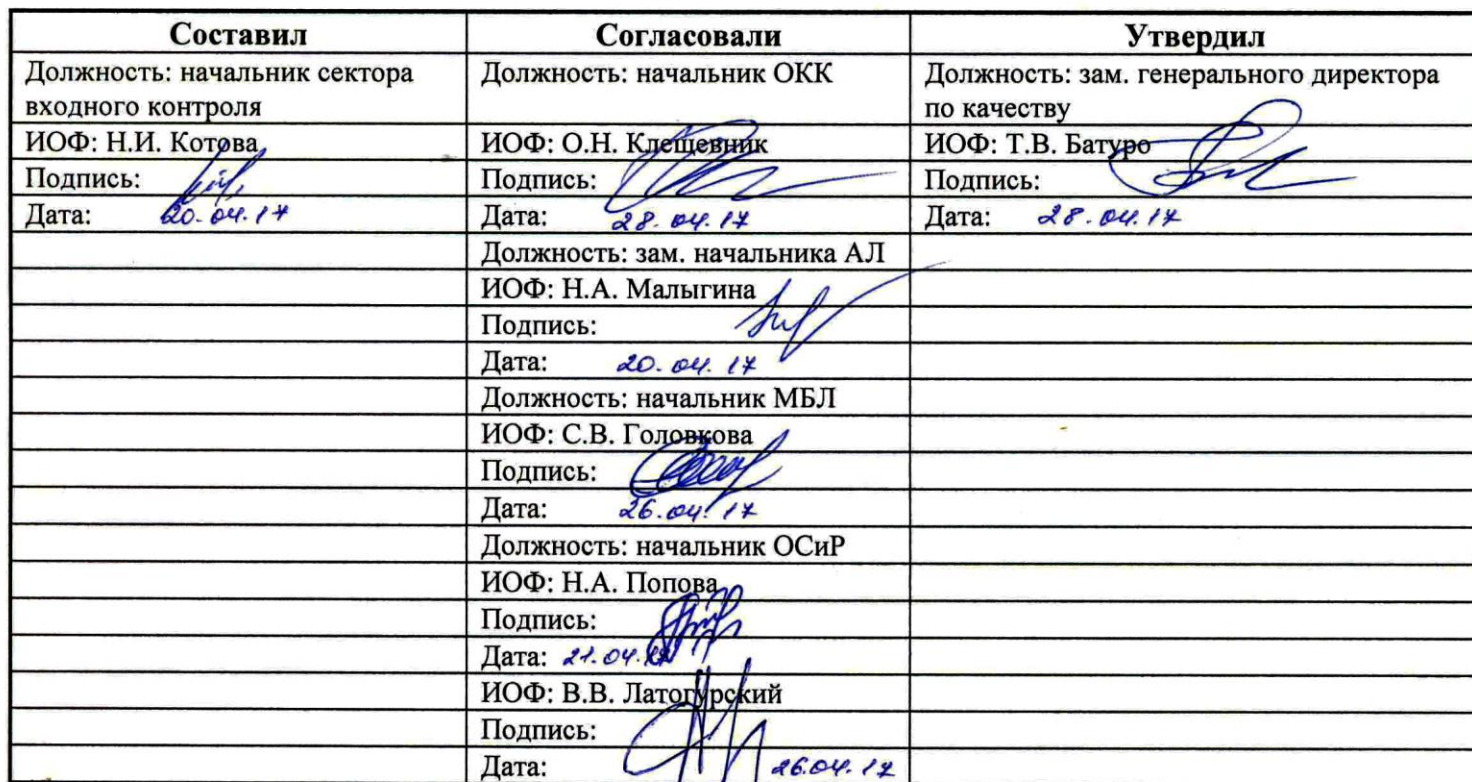 Составил Согласовали Утвердил
Должность: начальник сектора Должность: начальник ОКК Должность: зам. генерального директора
входного контроля по качеству
ИОФ: Н.И. Котова ИОФ: О.Н. Клещевник ИОФ: Т.В. Батуро
Подпись: Подпись: Подпись:
Дата: 20.04.17 Дата: 28.04.17 Дата: 28.04.17
Должность: зам. начальника АЛ
ИОФ: Н.А. Малыгина
Подпись:
Дата: 20.04.17
Должность: начальник МБЛ
ИОФ: С.В. Головкова
Подпись:
Дата: 26.04.17
Должность: начальник ОСиР
ИОФ: Н.А. Попова
Подпись:
Дата: 21.04.17
ИОФ: В.В. Латогурский
Подпись:
Дата: 26.04.17